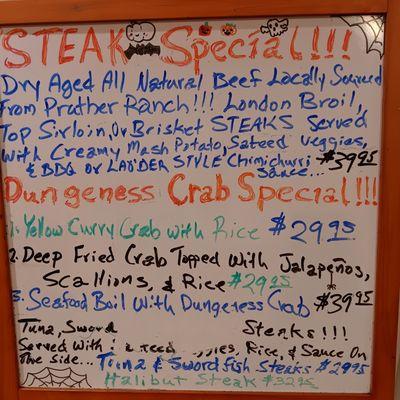 STEAK Special!!!
Dry Aged All Natural Beef Locally Sourced
From Prather Ranch!!! London Broil,
Top Sirloin, Or Brisket STEAKS Served
With Creamy Mash Potato, Sateed Veggies,
& BBQ Or LADDER STYLE Chimichurri Sauce... $39.95
Dungeness Crab Special!!!
1. Yellow Curry Crab with Rice $29.95
2. Deep Fried Crab Topped With Jalapeños,
Scallions, & Rice $29.95
3. Seafood Boil With Dungeness Crab $39.95
Tuna, Sword Steaks!!!
Served With Rice, & Sauce On
The Side... Tuna & Sword Fish Steaks $29.95
Halibut Steak $32.95